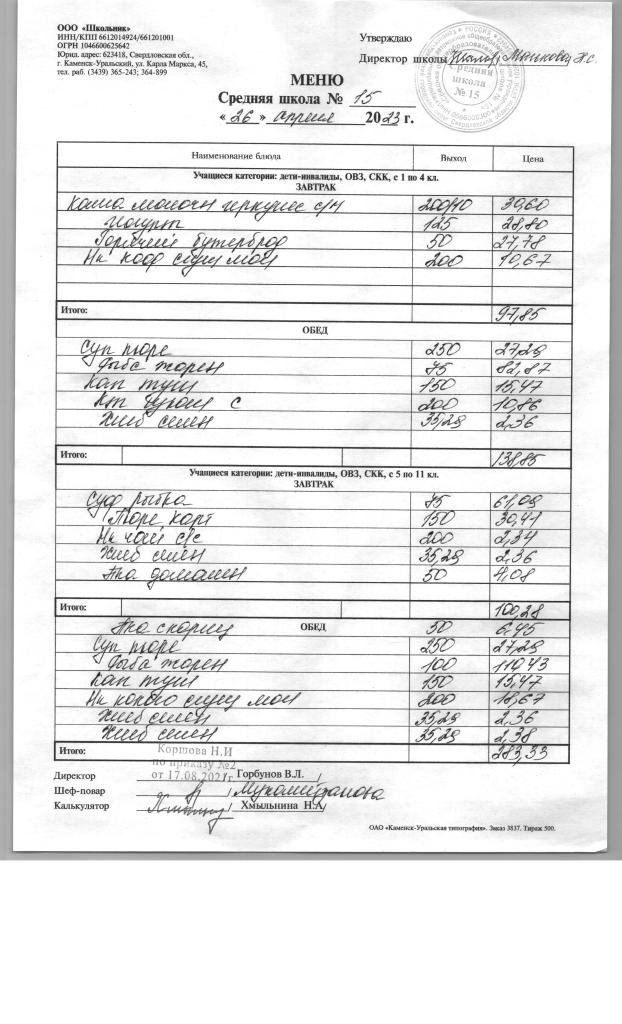 ООО «Школьник»
ИНН/КПП 6612014924/661201001
ОГРН 1046600625642
Юрид. адрес: 623418, Свердловская обл.,
г. Каменск-Уральский, ул. Карла Маркса, 45,
тел. раб. (3439) 365-243; 364-899
Утверждаю
Директор школы
Средняя школа № 15
МЕНЮ
Средняя школа № 15
« 26 » апреля 2023 г.
Наименование блюда Выход Цена
Учащиеся категории: дети-инвалиды, ОВЗ, СКК, с 1 по 4 кл.
ЗАВТРАК
Каша молочн геркулес с/м 200/10 30,60
Йогурт 125 28,80
Горячий бутерброд 50 27,78
200 10,67
Итого: 97,85
ОБЕД
Суп пюре 250 27,29
Рыба жарен 75 82,87
Кап туш 150 15,47
200 10,86
Хлеб 35,29 2,36
Итого: 138,85
Учащиеся категории: дети-инвалиды, ОВЗ, СКК, с 5 по 11 кл.
ЗАВТРАК
Суф рыбн 75 61,09
Пюре карт 150 30,41
Нк чай с/с 200 2,34
Хлеб 35,29 2,36
Икра домашн 50 4,08
Итого: 100,28
ОБЕД
50 6,45
Суп пюре 250 27,29
Рыба жарен 100 110,43
Кап туш 150 15,47
200 18,67
Хлеб 35,29 2,36
Хлеб 35,29 2,38
Итого: 283,33
Коршова Н.И
по приказу №2
от 17.08.2021г.
Директор / Горбунов В.Л. /
Шеф-повар
Калькулятор / Хмыльнина Н.А/
ОАО «Каменск-Уральская типография». Заказ 3837. Тираж 500.